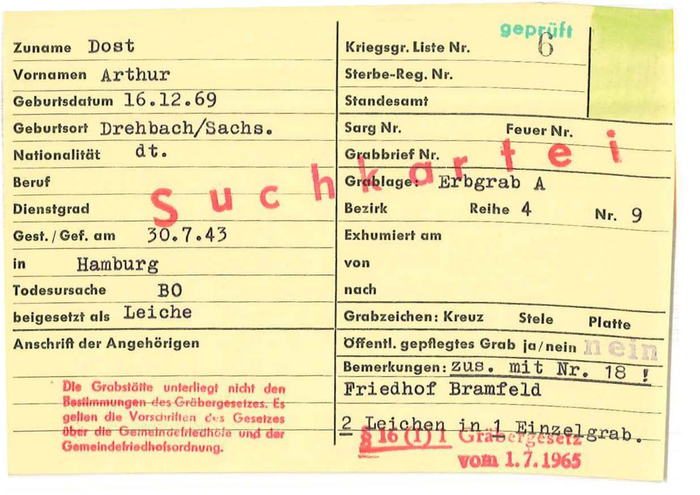 Zuname Dost
Vornamen Arthur
Geburtsdatum 16.12.69
Geburtsort Drehbach/Sachs.
Nationalität dt.
Beruf
Dienstgrad
Gest./Gef. am 30.7.43
in Hamburg
Todesursache BO
beigesetzt als Leiche
Anschrift der Angehörigen
Die Grabstätte unterliegt nicht den
Bestimmungen des Gräbergesetzes. Es
gelten die Vorschriften des Gesetzes
über die Gemeindefriedhöfe und der
Gemeindefriedhofsordnung.
Suchkartei
geprüft
Kriegsgr. Liste Nr. 6
Sterbe-Reg. Nr.
Standesamt
Sarg Nr. Feuer Nr.
Grabbrief Nr.
Grablage: Erbgrab A
Bezirk Reihe 4 Nr. 9
Exhumiert am
von
nach
Grabzeichen: Kreuz Stele Platte
Öffentl. gepflegtes Grab ja/nein nein
Bemerkungen: zus. mit Nr. 18 !
Friedhof Bramfeld
2 Leichen in 1 Einzelgrab.
§ 16 (1) 1 Gräbergesetz
vom 1.7.1965